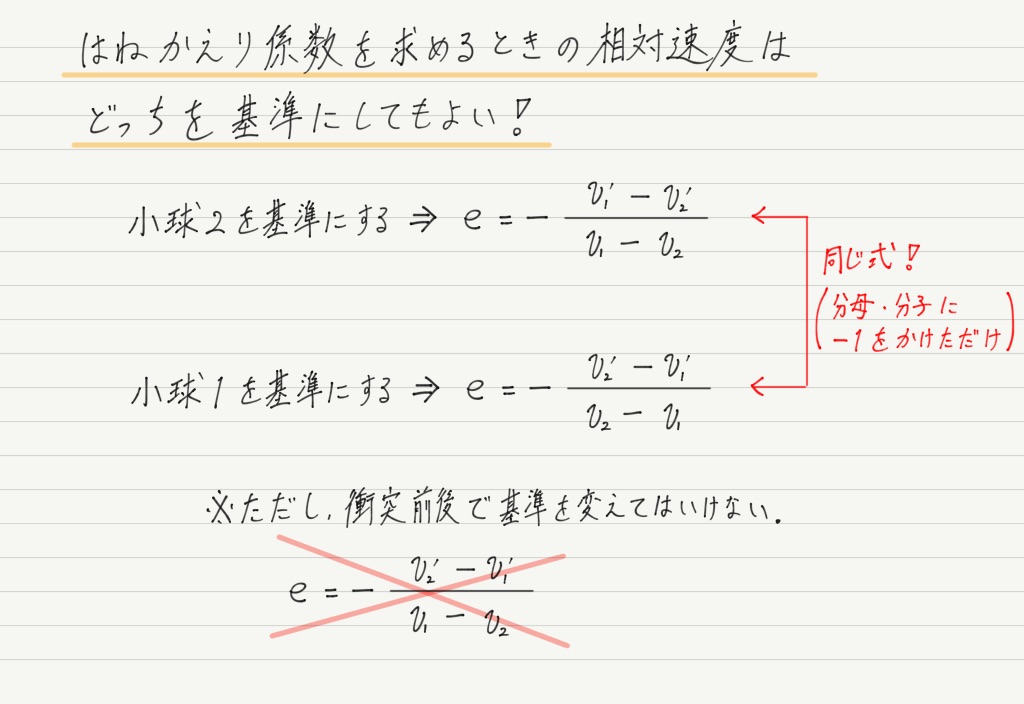 はねかえり係数を求めるときの相対速度は
どっちを基準にしてもよい!
小球2を基準にする ⇒ e = - (v₁' - v₂') / (v₁ - v₂)
同じ式!
(分母・分子に
-1をかけただけ)
小球1を基準にする ⇒ e = - (v₂' - v₁') / (v₂ - v₁)
※ただし、衝突前後で基準を変えてはいけない.
e = - (v₂' - v₁') / (v₁ - v₂)